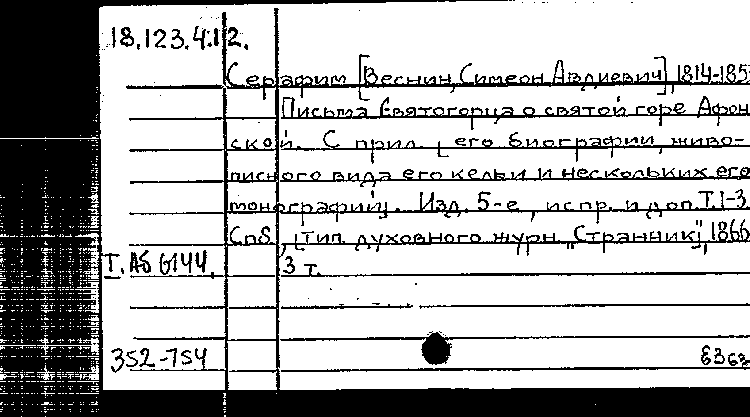 18.123.4.12.
Серафим [Веснин, Симеон Авдиевич], 1814-185
Письма Святогорца о святой горе Афон
ской. С прил. [его биографии, живо-
писного вида его кельи и нескольких его
монографий]. Изд. 5-е, испр. и доп. Т. 1-3
Спб, [тип. духовного журн. "Странник"], 1866
Т. Аб 6/44. 3 т.
352-754